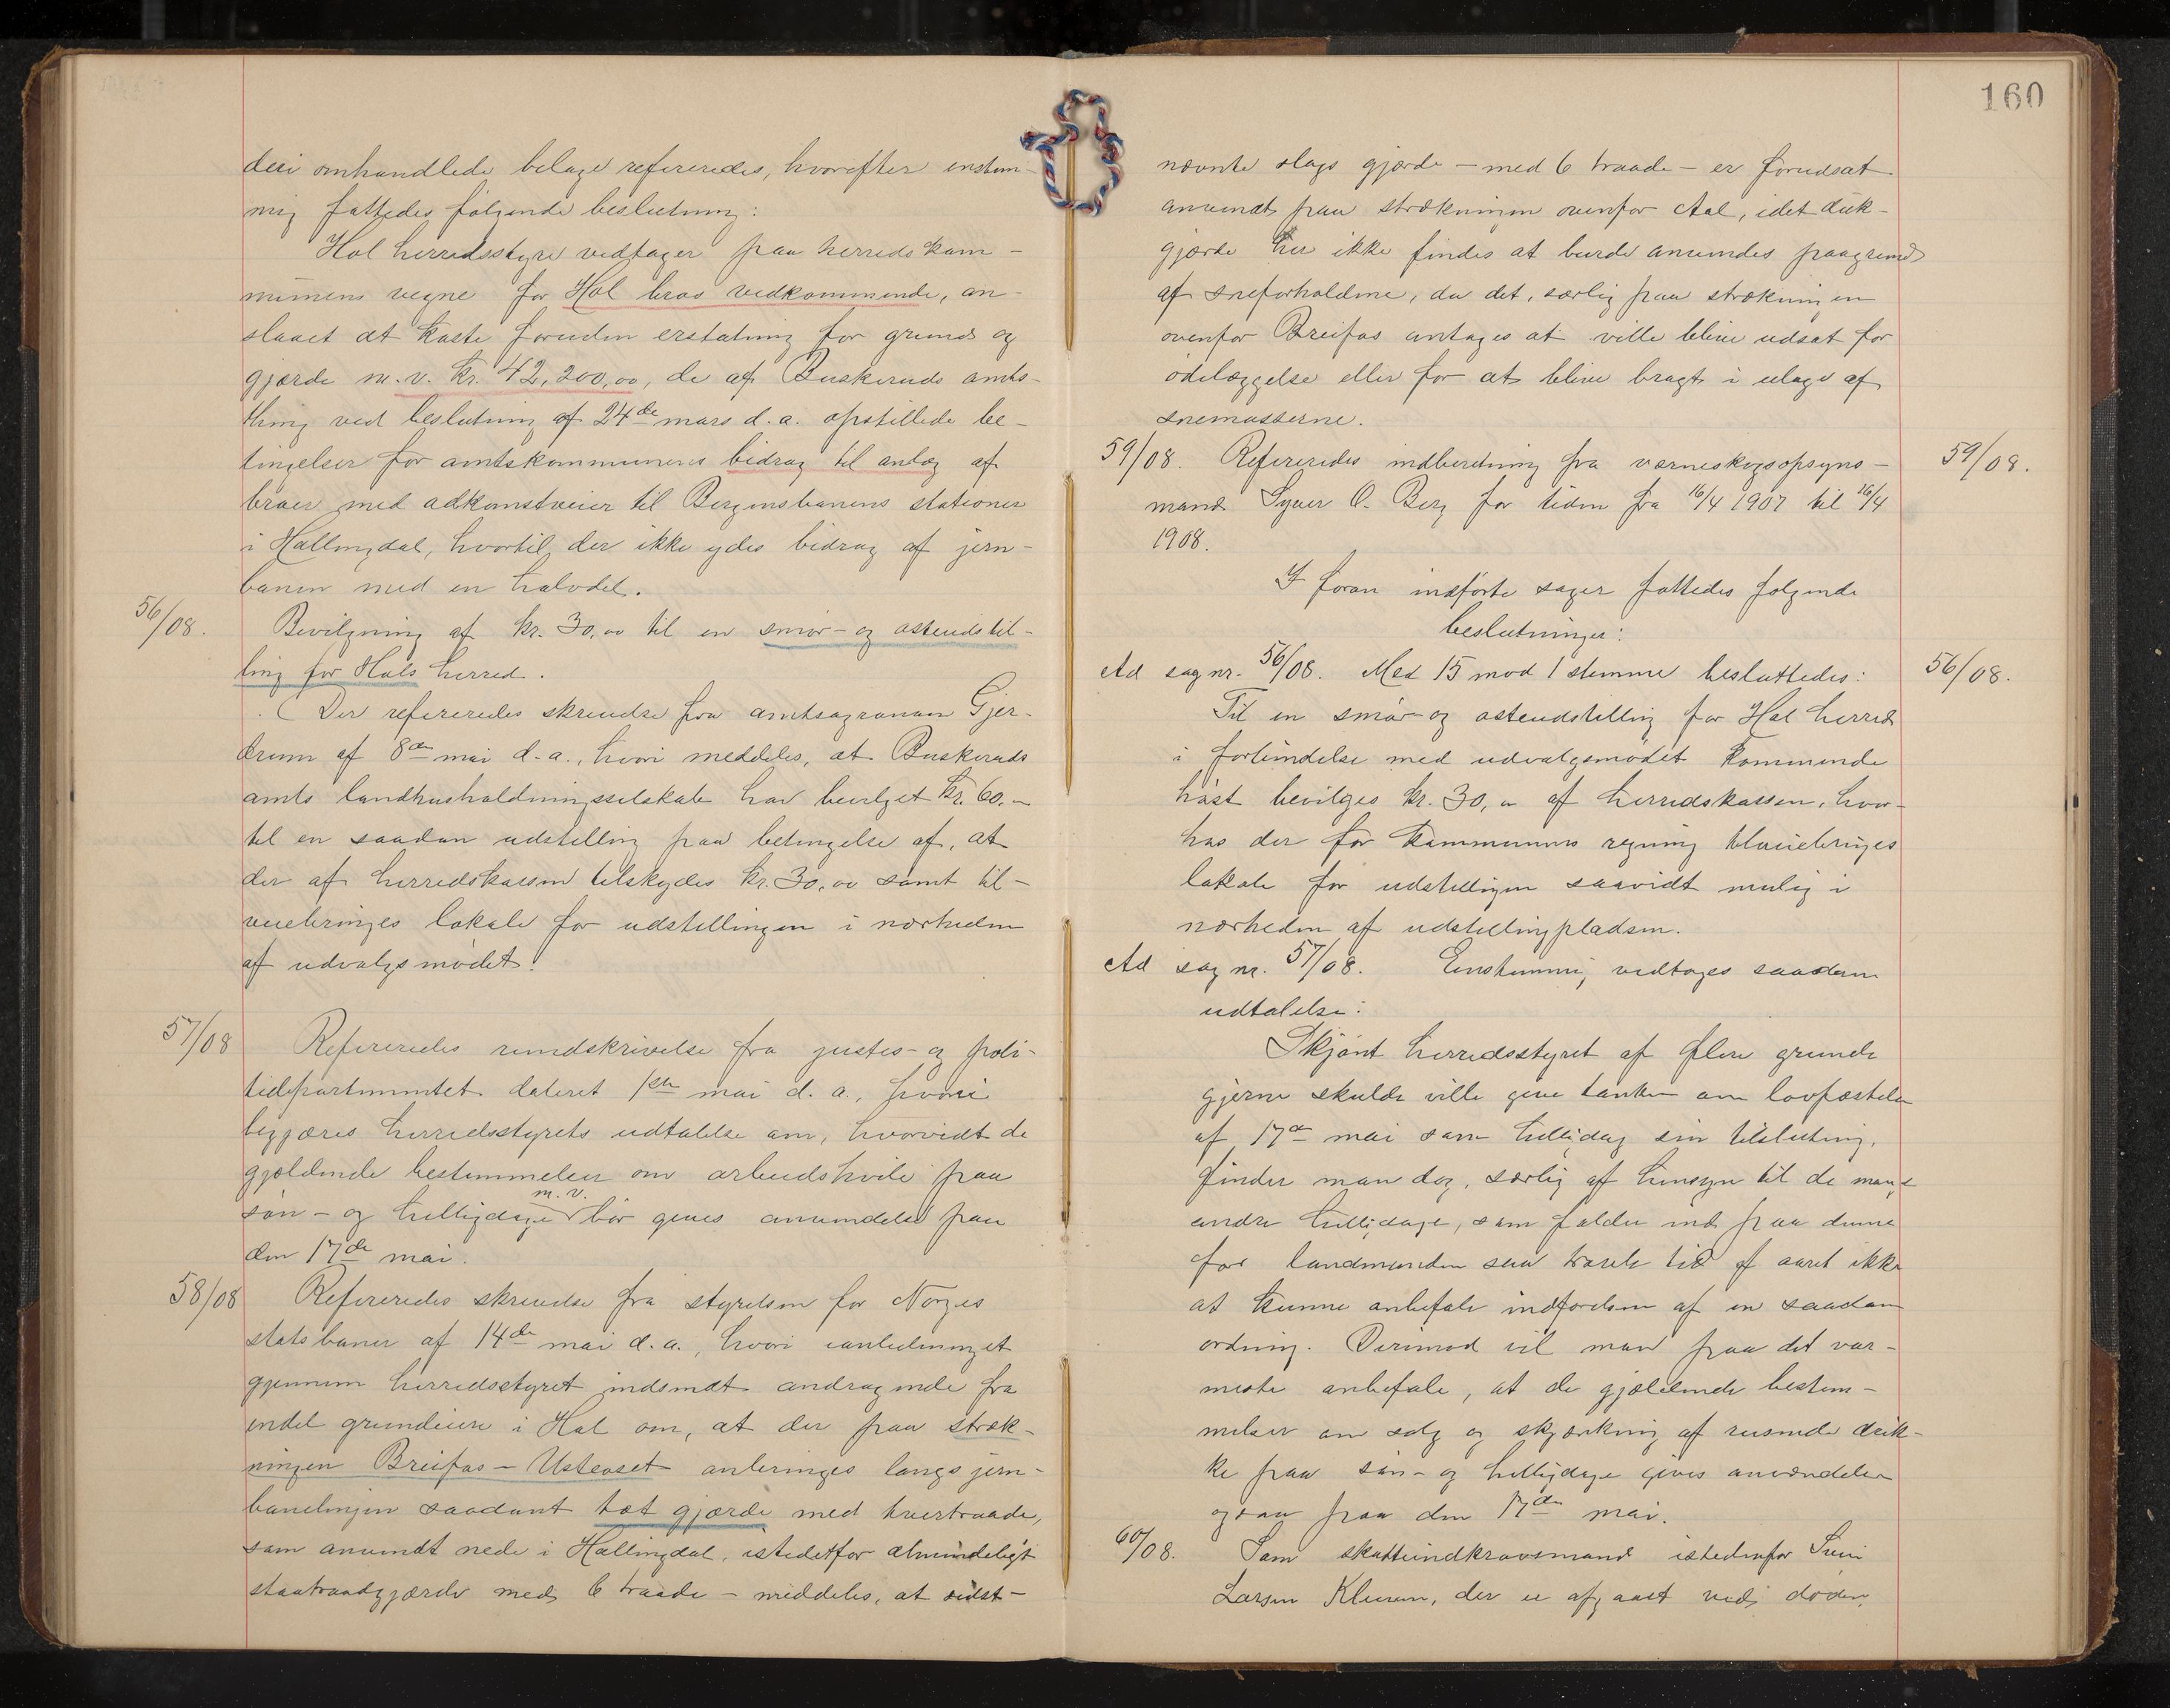 160
deri omhandlede belage refereredes, hvorefter enstem-
mig fattedes følgende beslutning:
Hol herredsstyre vedtager paa herredskom-
munens vegne for Hol bros vedkommende, an-
slaaet at koste foruden erstatning for grund og
gjærde m.v. kr. 42,200,00, de af Buskeruds amts-
thing ved beslutning af 24de mars d.a. opstillede be-
tingelser for amtskommunens bidrag til anlæg af
broer med adkomstveier til Bergensbanens stationer
i Hallingdal, hvortil der ikke ydes bidrag af jern-
banen med en halvdel.
56/08. Bevilgning af kr. 30,00 til en smør- og osteudstil-
ling for Hols herred.
Der refereredes skrivelse fra amtsagronom Gjer-
drum af 8de mai d.a., hvori meddeles, at Buskeruds
amts landhusholdningsselskab har bevilget kr. 60,-
til en saadan udstilling paa betingelse af, at
der af herredskassen tilskydes kr. 30,00 samt til-
veiebringes lokale for udstillingen i nærheden
af udvalgsmødet.
57/08 Refereredes rundskrivelse fra justis- og poli-
tidepartementet dateret 1ste mai d.a., hvori
begjæres herredsstyrets udtalelse om, hvorvidt de
gjældende bestemmelser om arbeidshvile paa
søn- og helligdage m.v. bør gives anvendelse paa
den 17de mai.
58/08 Refereredes skrivelse fra styrelsen for Norges
statsbaner af 14de mai d.a., hvori ianledninget
gjennem herredsstyret indsendt andragende fra
endel grundeiere i Hol om, at der paa stræk-
ningen Breifos - Ustaoset anbringes langs jern-
banelinjen saadant tæt gjærde med tvertraade,
som anvendt nede i Hallingdal, istedetfor almindeligt
staaltraadgjærde med 6 traade - meddeles, at sidst-
nævnte slags gjærde - med 6 traade - er forudsat
anvendt paa strækningen ovenfor Aal, idet
gjærde her ikke findes at burde anvendes paagrund
af sneforholdene, da det, særlig paa strækningen
ovenfor Breifos antages at ville blive udsat for
ødelæggelse eller for at blive bragt i ulage af
snemasserne.
59/08. Refereredes indberetning fra værneskogsopsyns- 59/08.
mand Syver O. Berg for tiden fra 16/4 1907 til 16/4
1908.
I foran indførte sager fattedes følgende
beslutninger:
Ad sag nr. 56/08. Med 15 mod 1 stemme besluttedes: 56/08.
Til en smør- og osteudstilling for Hol herred
i forbindelse med udvalgsmødet kommende
høst bevilges kr. 30,00 af herredskassen, hvor-
hos der for kommunens regning tilveiebringes
lokale for udstillingen saavidt mulig i
nærheden af udstillingpladsen.
Ad sag nr. 57/08. Enstemmig vedtoges saadan
udtalelse:
Skjønt herredsstyret af flere grunde
gjerne skulde ville give tanken om lovfæstelse
af 17de mai som helligdag sin tilslutning,
finder man dog, særlig af hensyn til de mange
andre helligdage, som falder ind paa denne
for landmanden saa travle tid af aaret ikke
at kunne anbefale indførelsen af en saadan
ordning. Derimod vil man paa det var-
meste anbefale, at de gjældende bestem-
melser om salg og skjænkning af rusende drik-
ke paa søn- og helligdage gives anvendelse
ogsaa paa den 17de mai.
60/08. Som skatteindkrævsmand istedenfor
Larsen, der er afgaaet ved døden,